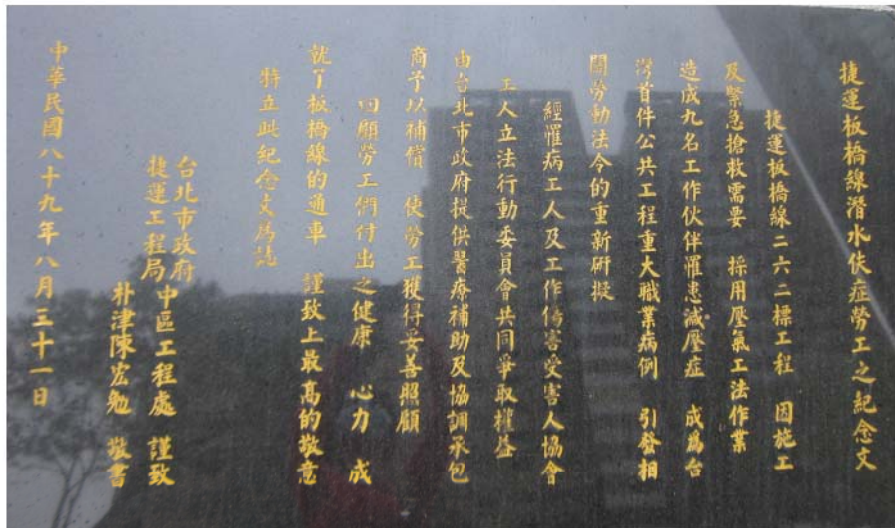 捷運板橋線潛水伕症勞工之紀念文
捷運板橋線二六二標工程 因施工
及緊急搶救需要 採用壓氣工法作業
造成九名工作伙伴罹患減壓症 成為台
灣首件公共工程重大職業病例 引發相
關勞動法令的重新研擬
經罹病工人及工作傷害受害人協會
工人立法行動委員會共同爭取權益
由台北市政府提供醫療補助及協調承包
商予以補償 使勞工獲得妥善照顧
回顧勞工們付出之健康 心力 成
就了板橋線的通車 謹致上最高的敬意
特立此紀念文為誌
台北市政府
捷運工程局 中區工程處 謹致
朴津陳宏勉 敬書
中華民國八十九年八月三十一日